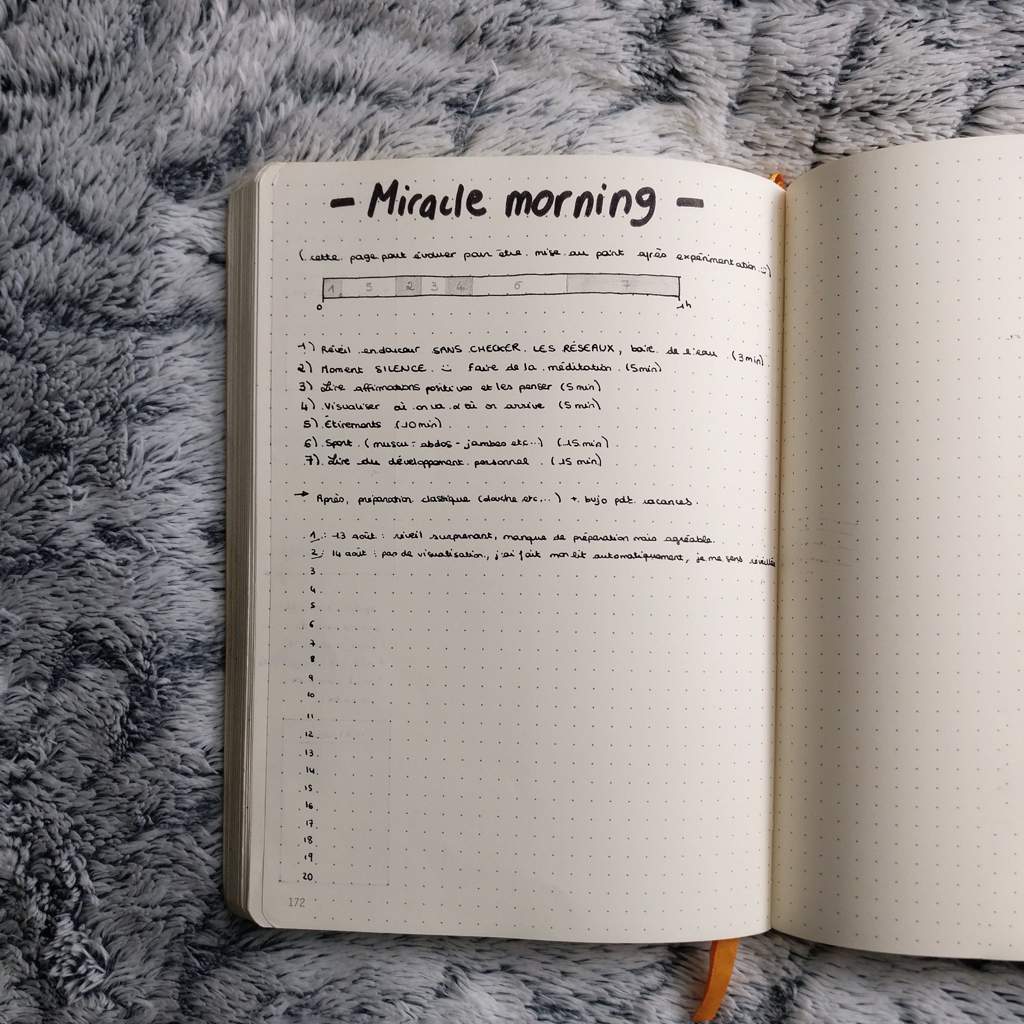 - Miracle morning -
(cette page peut évoluer pour être mise au point après expérimentation :))
1 5 2 3 4 6 7
0 1h
1) Réveil en douceur SANS CHECKER LES RÉSEAUX, boire de l'eau (3min)
2) Moment SILENCE :) Faire de la méditation (5min)
3) Lire affirmations positives et les penser (5min)
4) Visualiser où on va d'où on arrive (5min)
5) Étirements (10min)
6) Sport (muscu - abdos - jambes etc...) (15min)
7) Lire du développement personnel (15 min)
→ Après, préparation classique (douche etc...) + bujo pdt vacances.
1 : 13 août : réveil surprenant, manque de préparation mais agréable.
2 : 14 août : pas de visualisation, j'ai fait mon lit automatiquement, je me sens réveillée
3
4
5
6
7
8
9
10
11
12
13
14
15
16
17
18
19
20
172